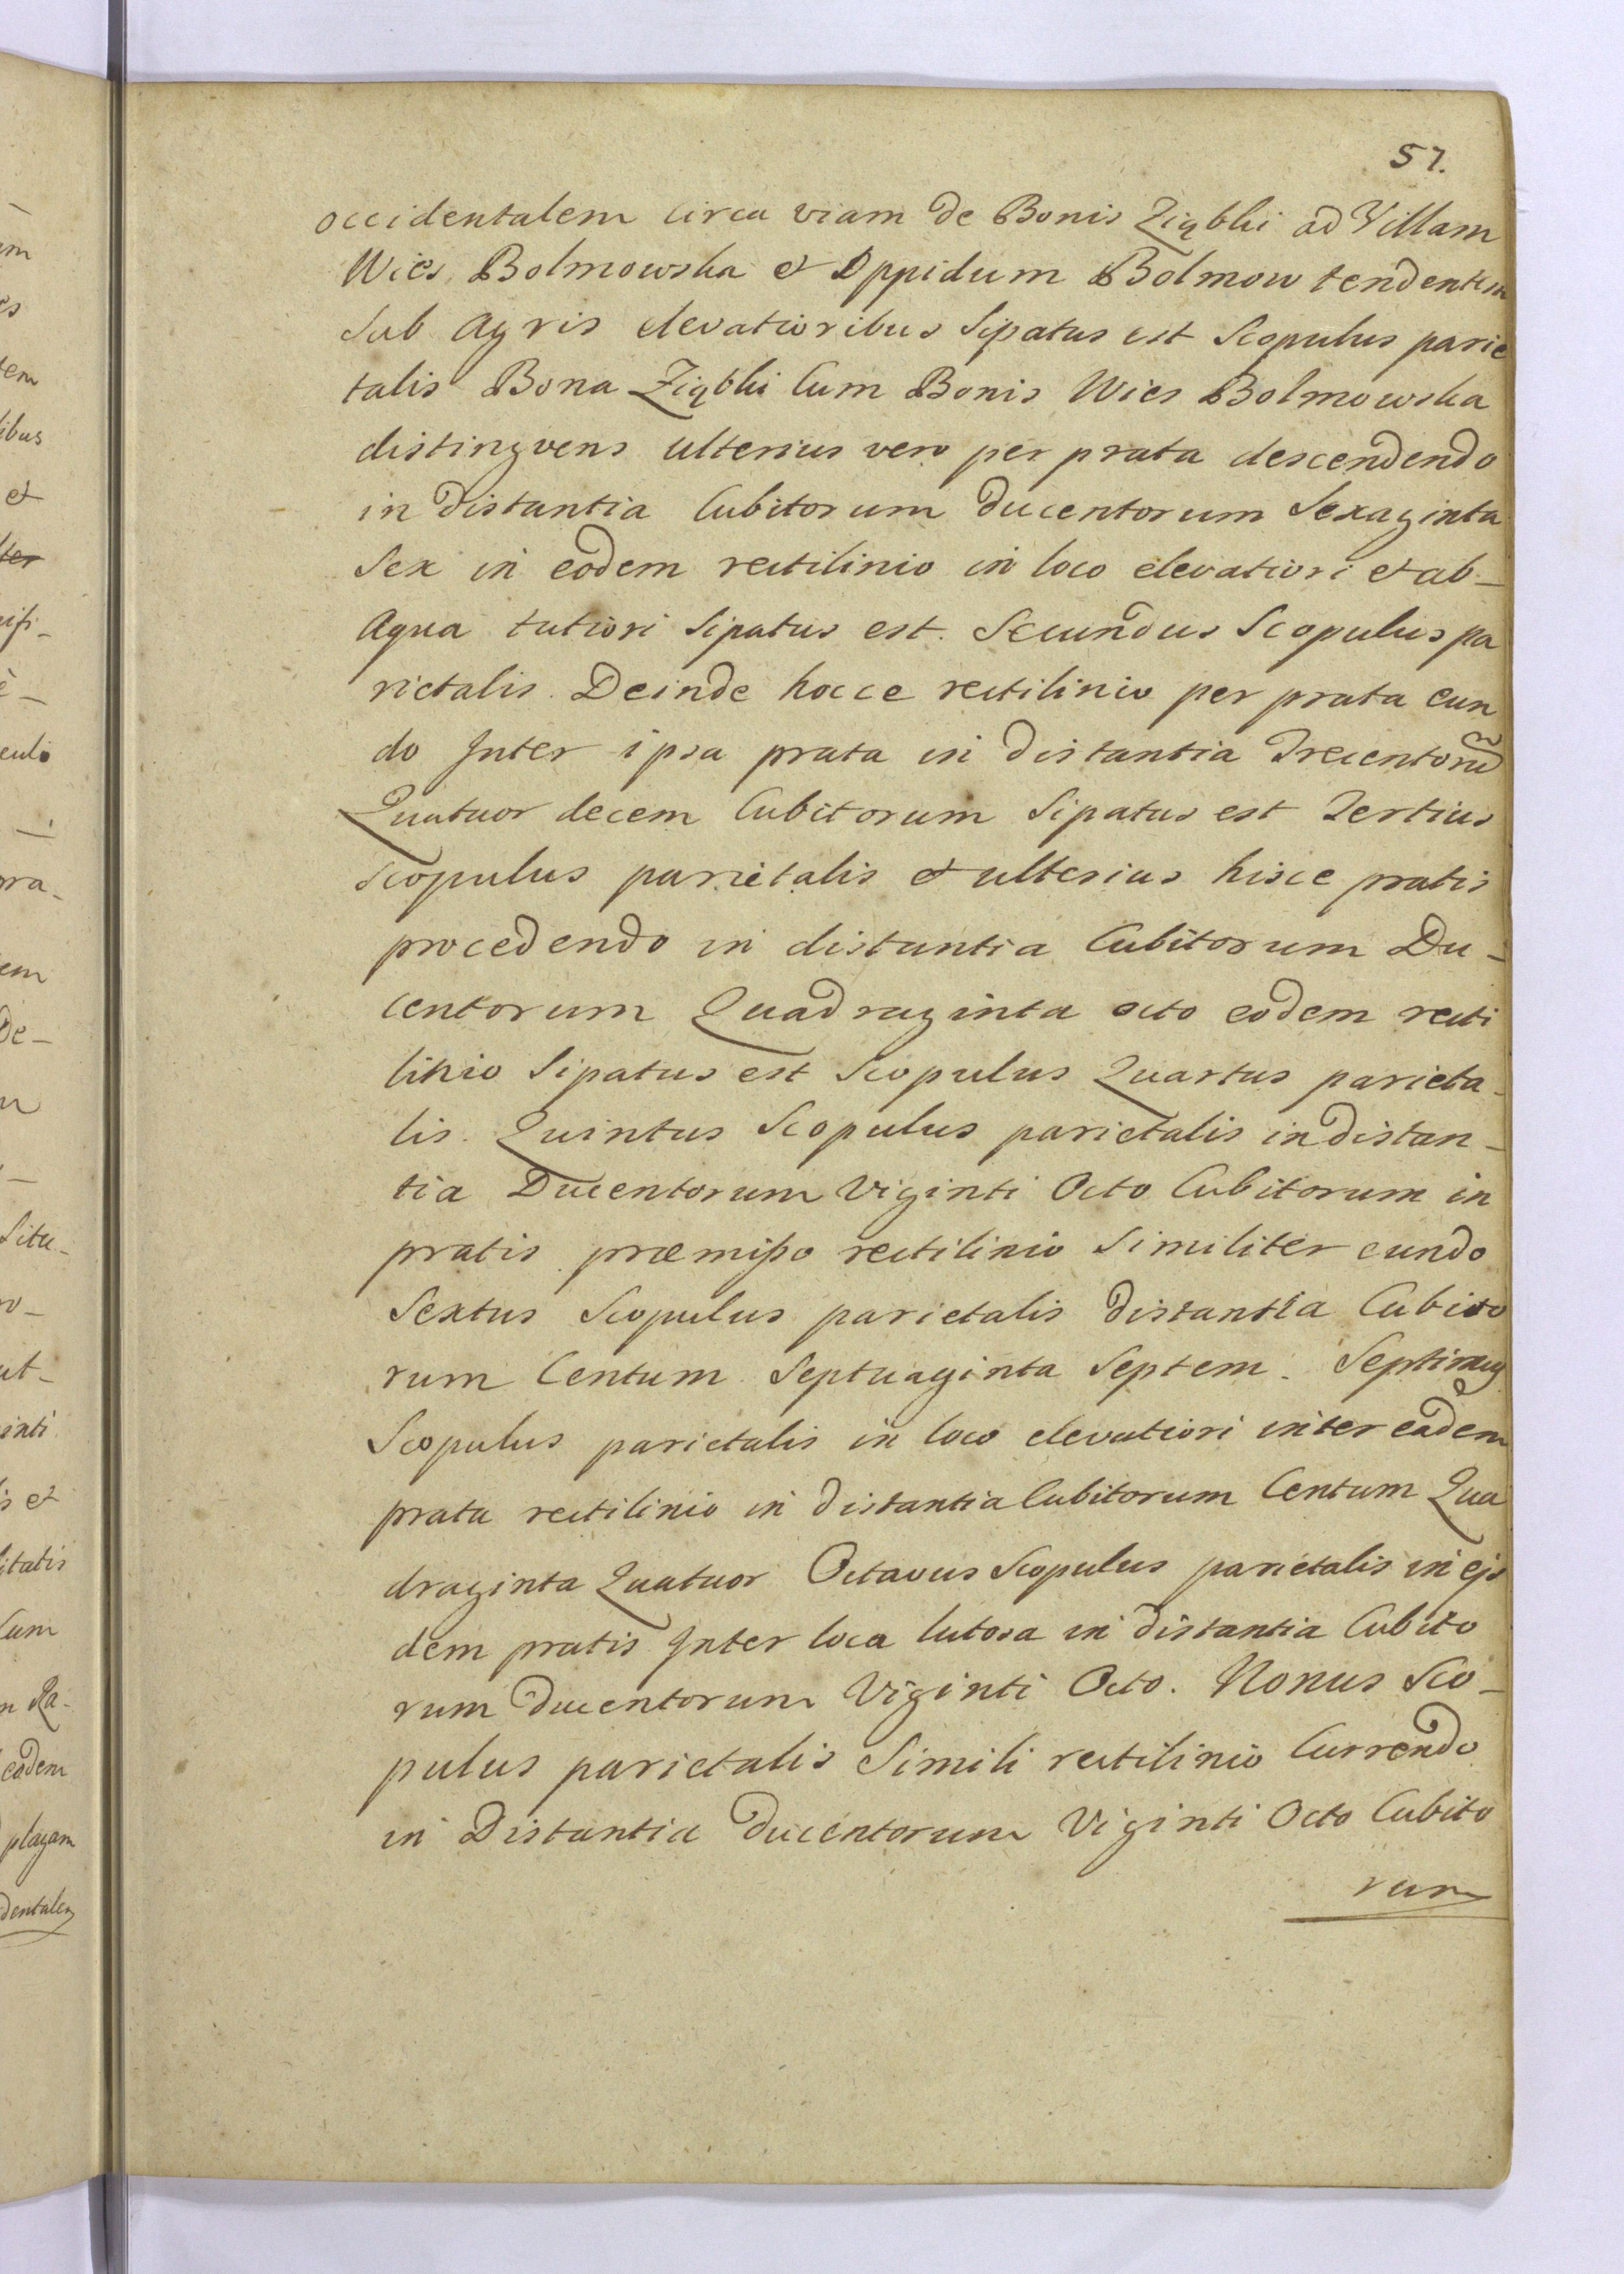 57.
occidentalem circa viam de Bonis Ziębłii ad Villam
Wies Bolmowska et Oppidum Bolmow tendentem
Sub Agris elevatioribus Sipatus est Scopulus parie
talis Bona Ziębłii Cum Bonis Wies Bolmowska
distingvens ulterius vero per prata descendendo
in distantia Cubitorum ducentorum Sexaginta
Sex in eodem rectilinio in loco elevatiori et ab-
Aqua tutiori Sipatus est. Secundus Scopulus pa
rietalis. Deinde hocce rectilinio per prata eun
do Inter ipsa prata in distantia Trecentorū
Quatuor decem Cubitorum Sipatus est Tertius
Scopulus parietalis et ulterius hisce pratis
procedendo in distantia Cubitorum Du-
centorum Quadraginta octo eodem recti
linio Sipatus est Scopulus Quartus parieta-
lis. Quintus Scopulus parietalis in distan-
tia Ducentorum Viginti Octo Cubitorum in
pratis præmißo rectilinio Similiter eundo
Sextus Scopulus parietalis distantia Cubito
rum Centum Septuaginta Septem. Septimus
Scopulus parietalis in loco elevatiori inter eadem
prata rectilinio in distantia Cubitorum Centum Qua
draginta Quatuor Octavus Scopulus parietalis in ejs
dem pratis Inter loca lutosa in distantia Cubito
rum ducentorum Viginti Octo. Nonus Sco-
pulus parietalis Simili rectilinio Currendo
in Distantia ducentorum Viginti Octo Cubito
rum